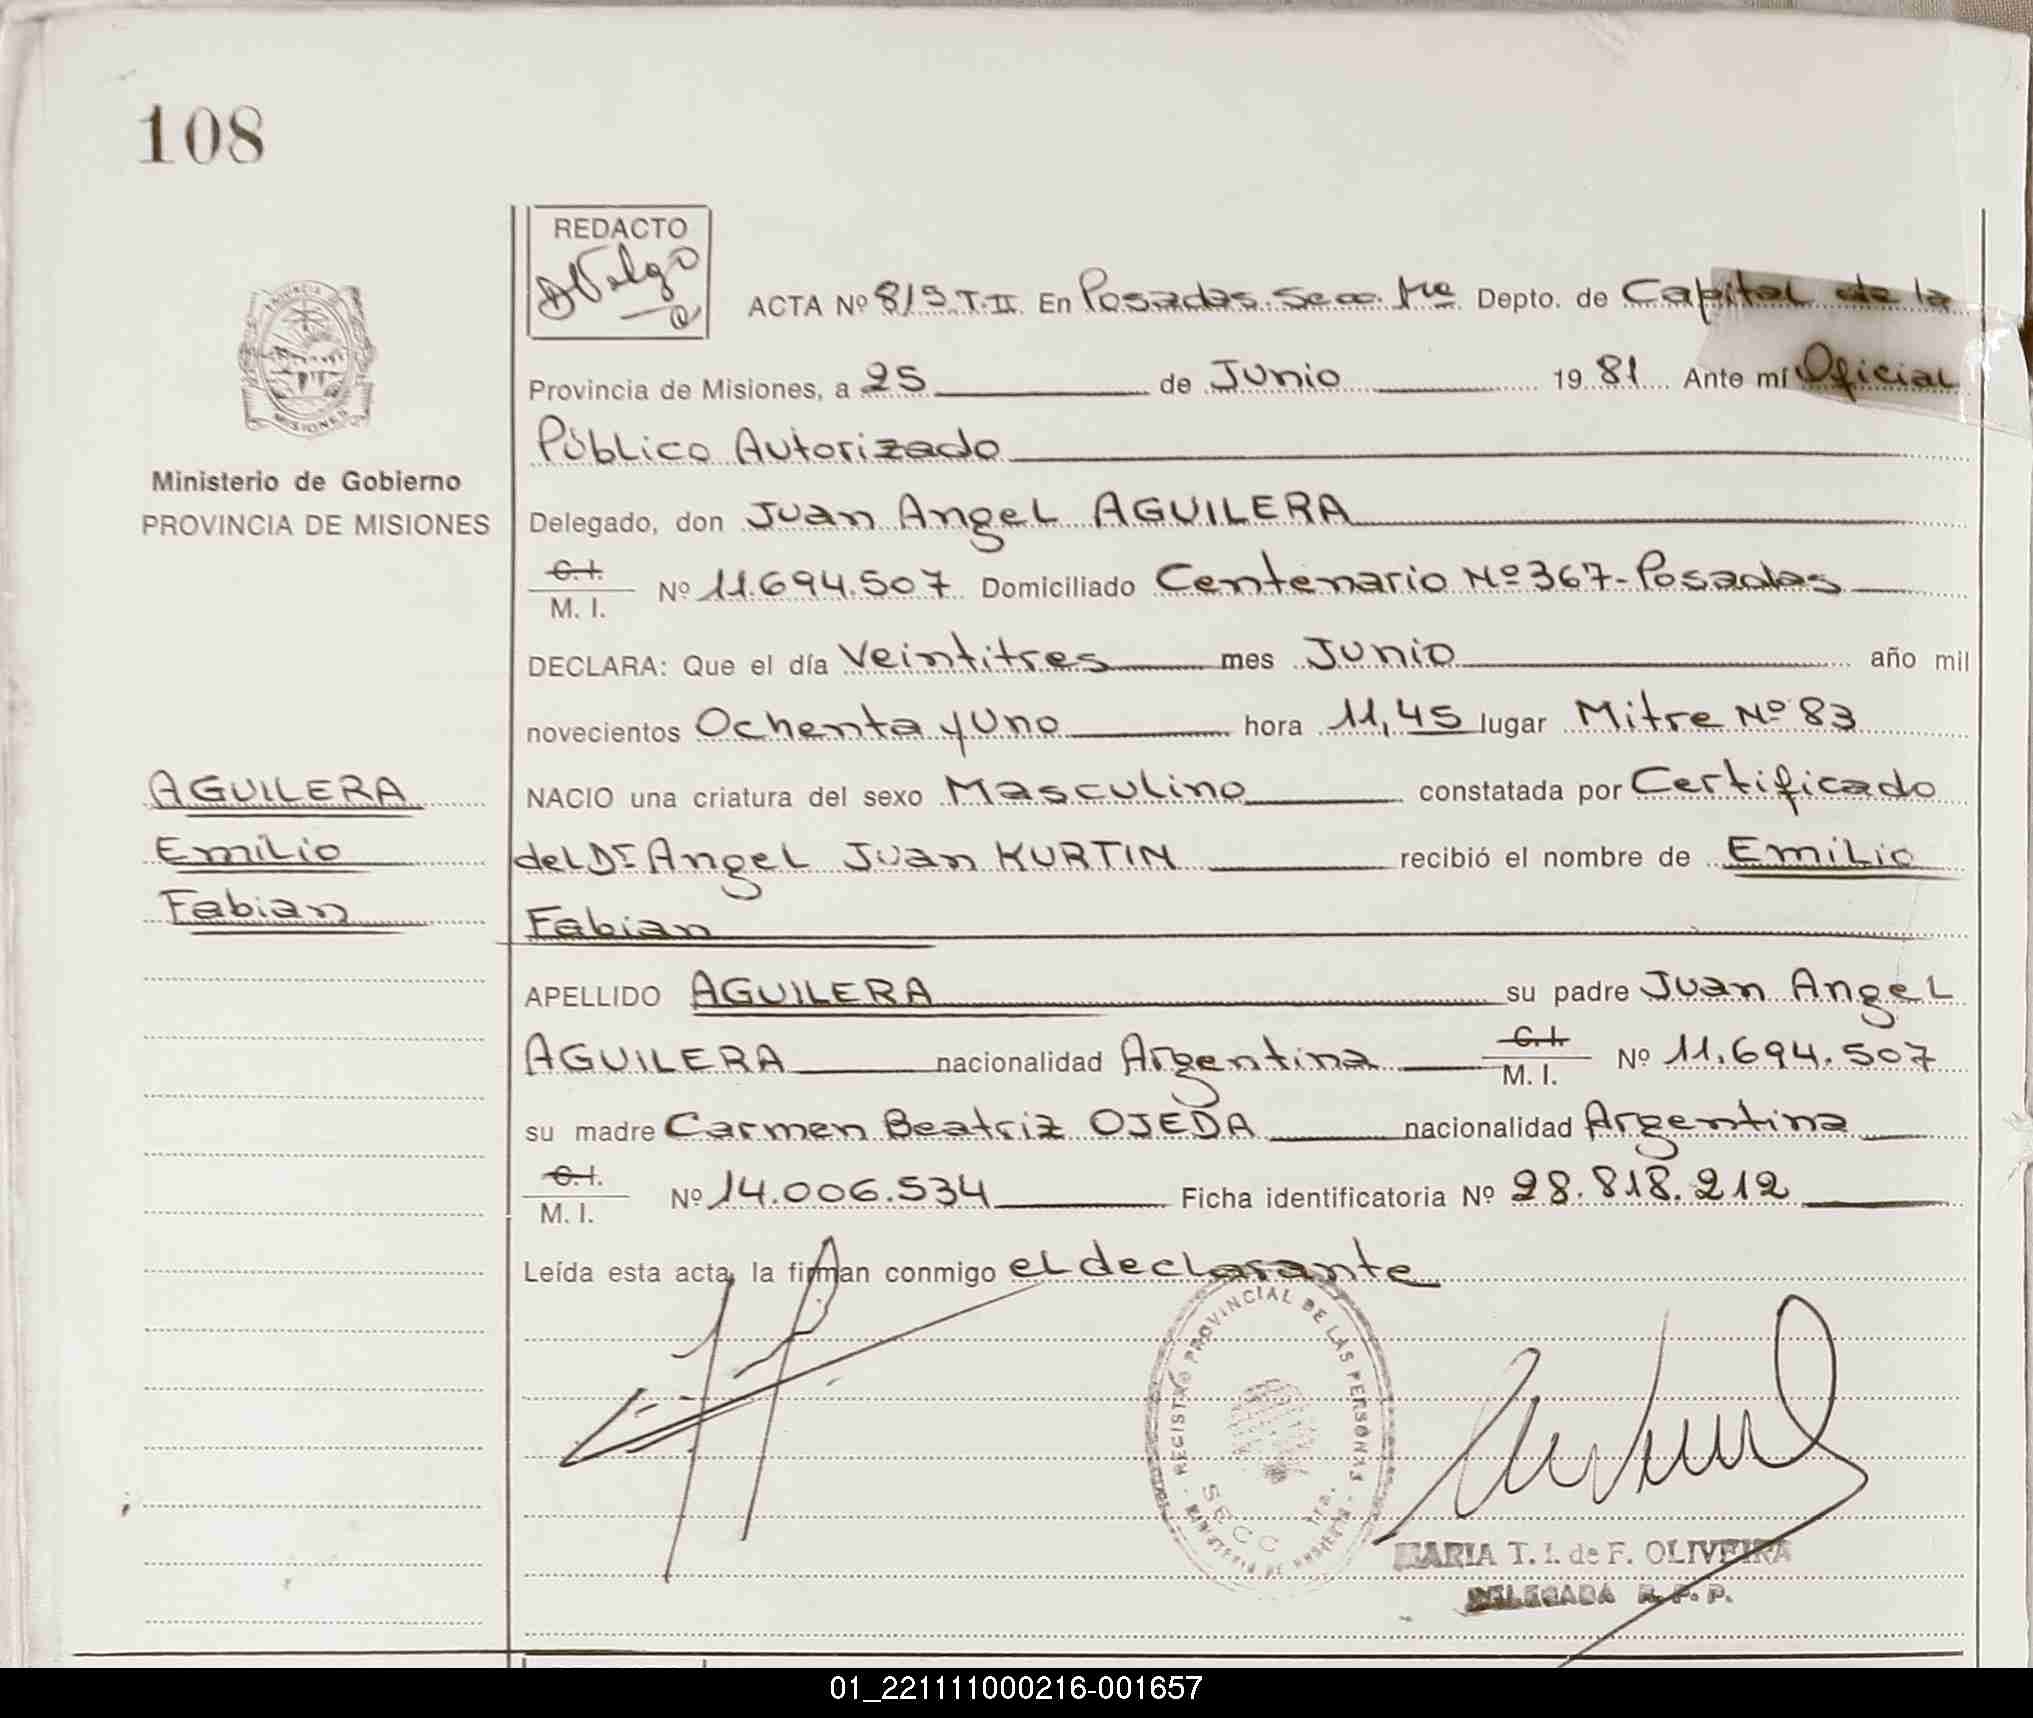 108
REDACTO
ACTA Nº 819 T.II En Posadas Secc. 1ra Depto. de Capital de la
Provincia de Misiones, a 25 de Junio 1981 Ante mí Oficial
Público Autorizado
Ministerio de Gobierno
PROVINCIA DE MISIONES
Delegado, don Juan Angel AGUILERA
C.I.
M. I. Nº 11.694.507 Domiciliado Centenario Nº 367-Posadas
DECLARA: Que el día Veintitres mes Junio año mil
novecientos Ochenta y Uno hora 11,45 lugar Mitre Nº 83
AGUILERA
Emilio
Fabian
NACIO una criatura del sexo Masculino constatada por Certificado
del Dr Angel Juan KURTIN recibió el nombre de Emilio
Fabian
APELLIDO AGUILERA su padre Juan Angel
AGUILERA nacionalidad Argentina C.I.
M. I. Nº 11.694.507
su madre Carmen Beatriz OJEDA nacionalidad Argentina
C.I.
M. I. Nº 14.006.534 Ficha identificatoria Nº 28.818.212
Leída esta acta, la firman conmigo el declarante
REGISTRO PROVINCIAL DE LAS PERSONAS
SECC 1ra.
MINISTERIO DE GOBIERNO
MARIA T. I. de F. OLIVEIRA
DELEGADA R. P. P.
01_221111000216-001657